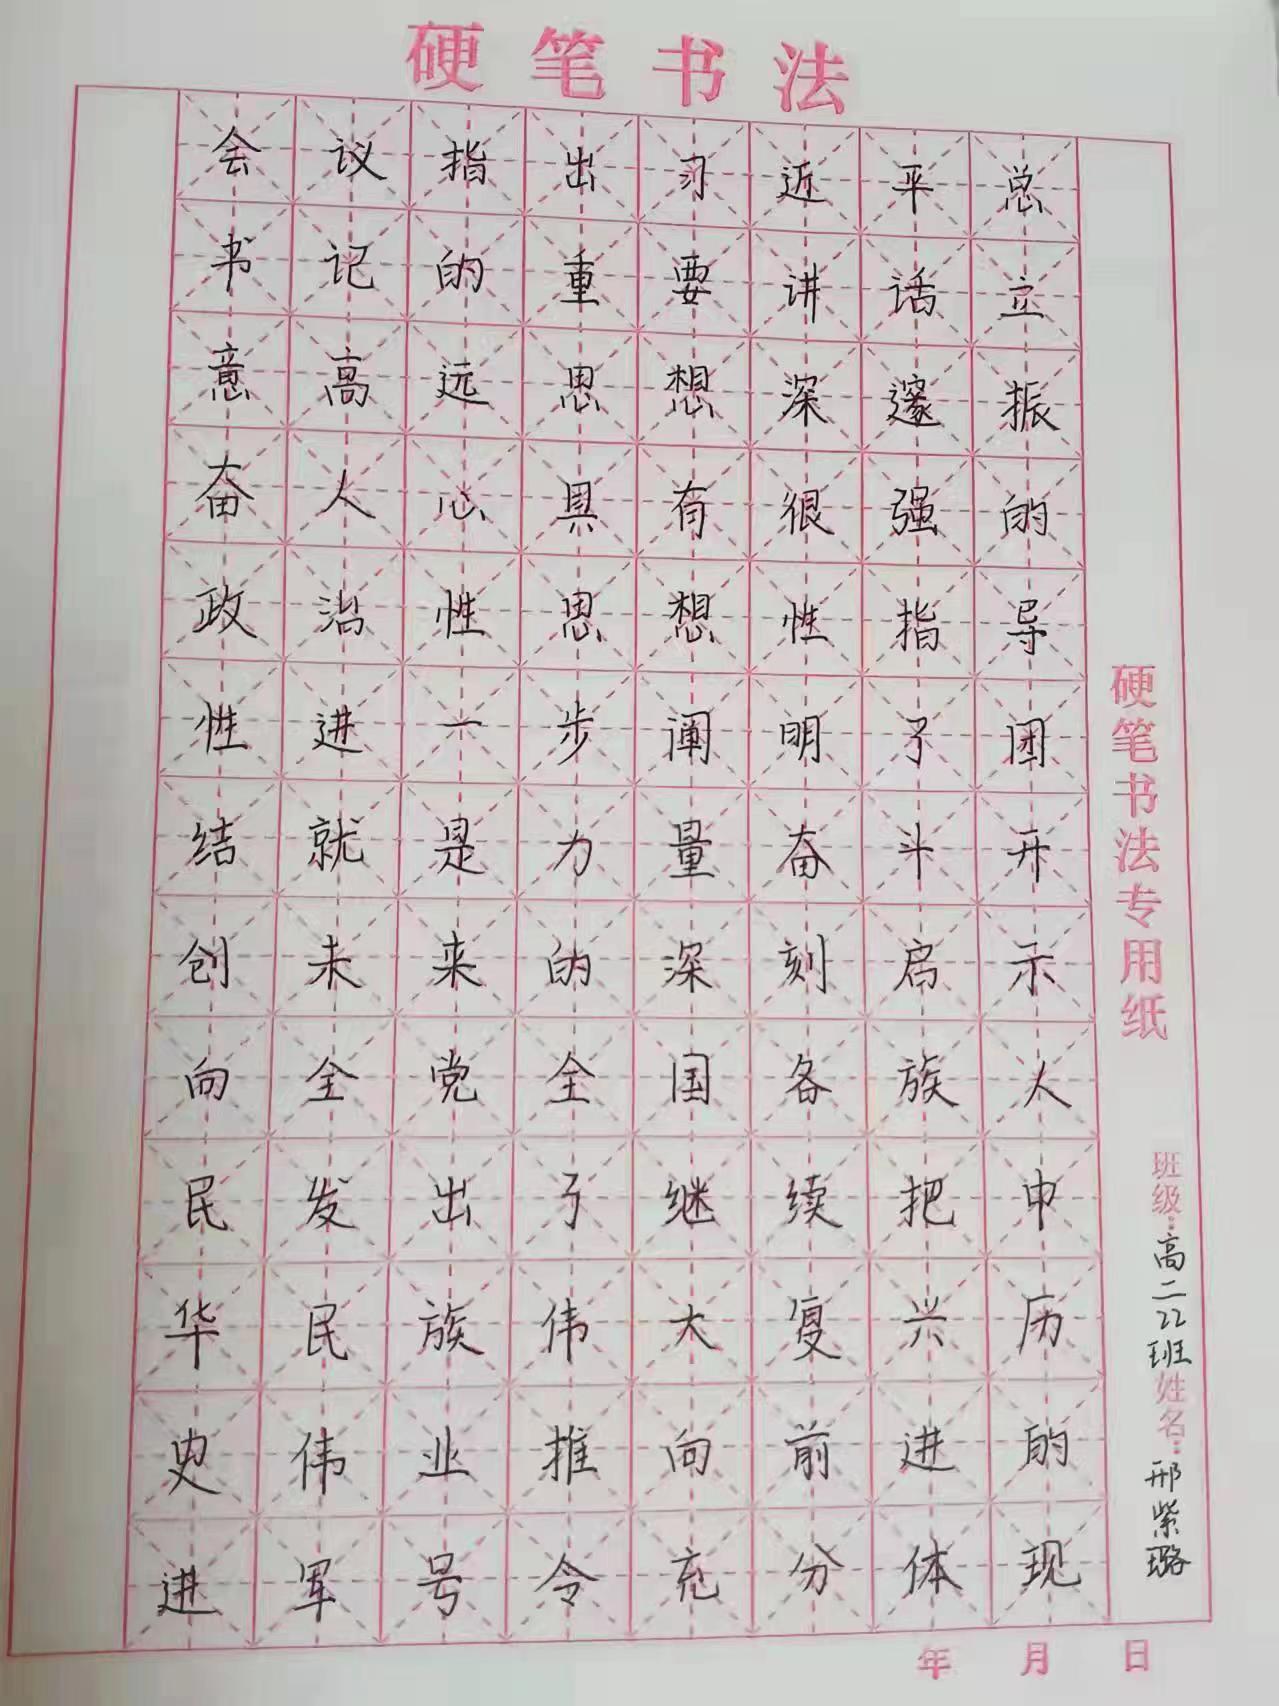 硬笔书法
会议指出习近平总
书记的重要讲话立
意高远思想深邃振
奋人心具有很强的
政治性思想性指导
性进一步阐明了团
结就是力量奋斗开
创未来的深刻启示
向全党全国各族人
民发出了继续把中
华民族伟大复兴历
史伟业推向前进的
进军号令充分体现
硬笔书法专用纸
班级:高二22班姓名:邢紫璐
年 月 日